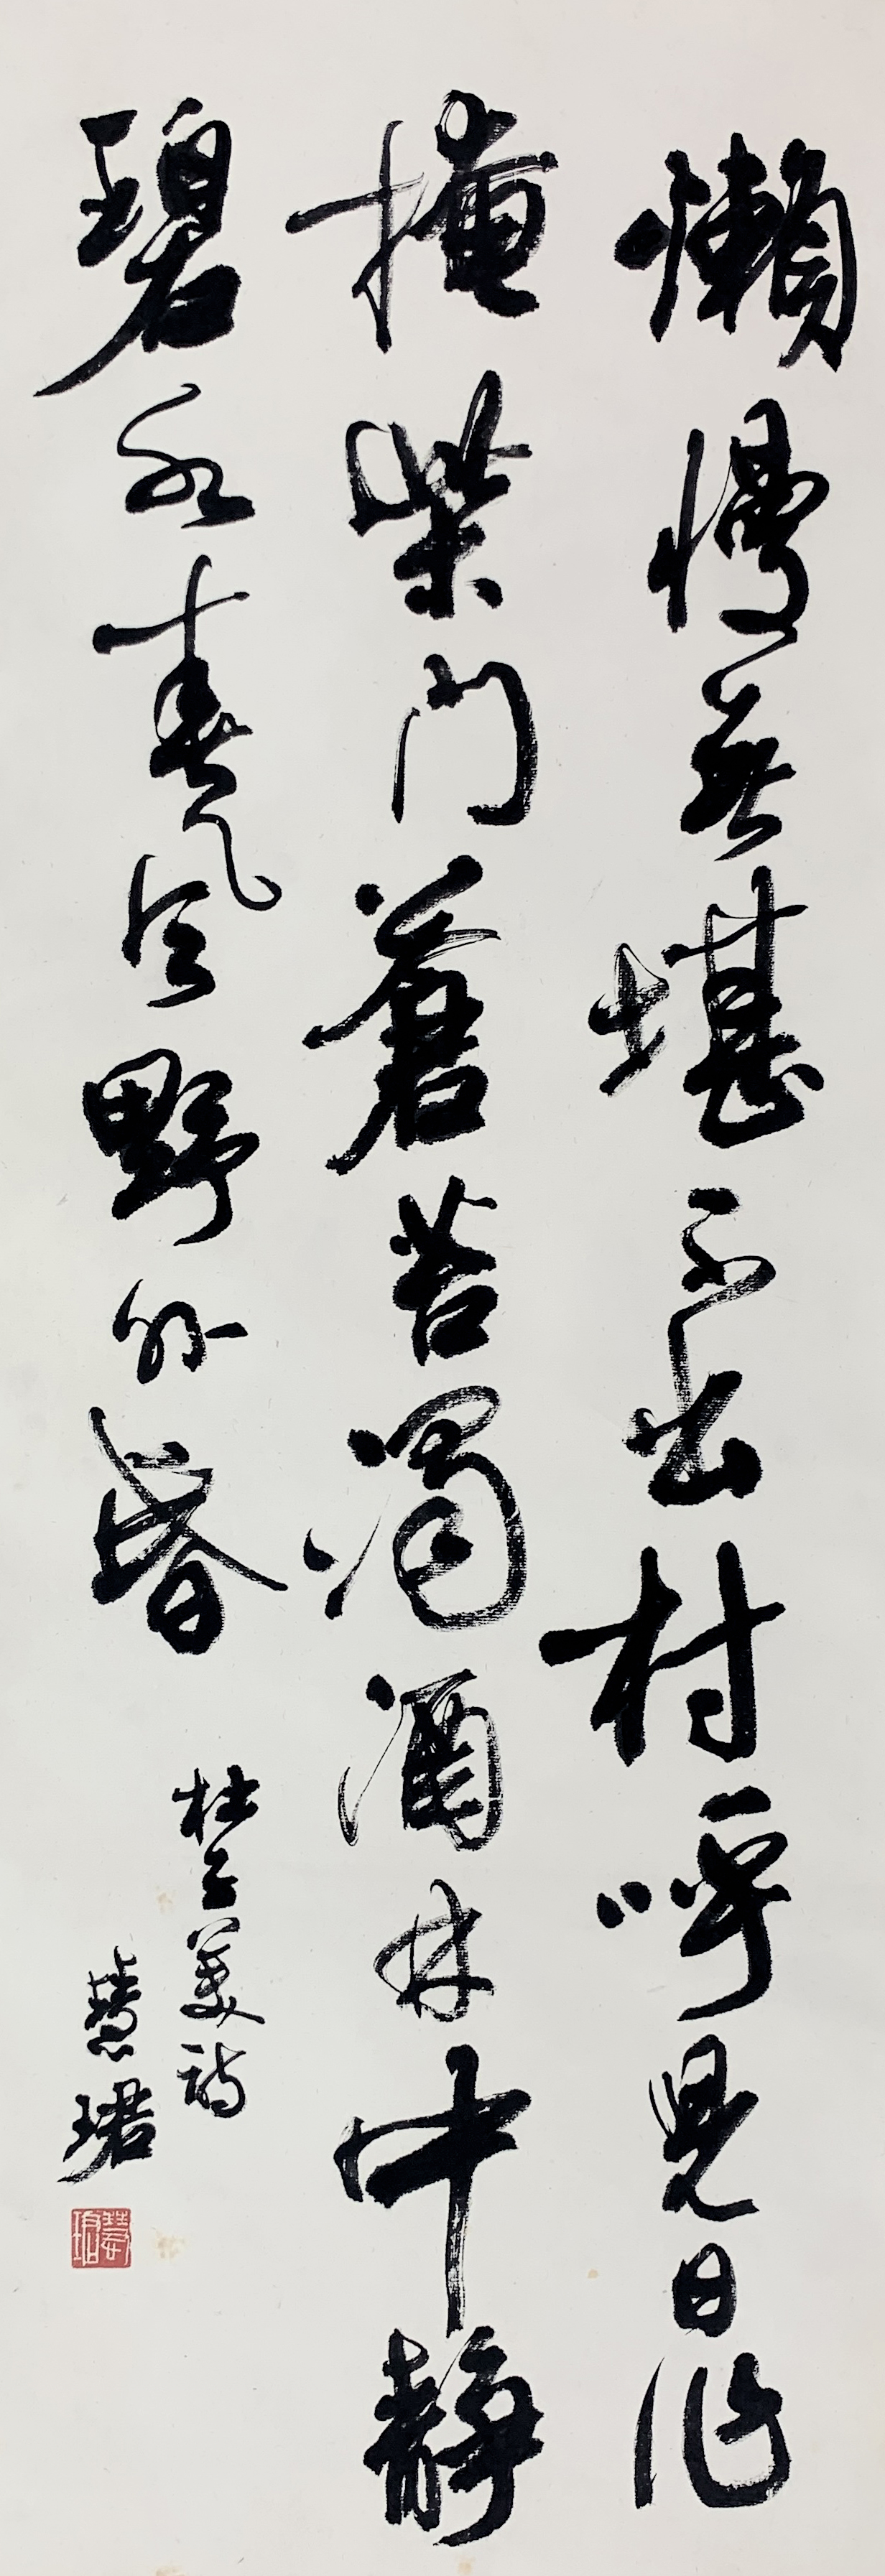 懶慢無堪不出村呼兒日在
掩柴門蒼苔濁酒林中靜
碧水春風野外昏
杜子美詩
慧珺
慧珺